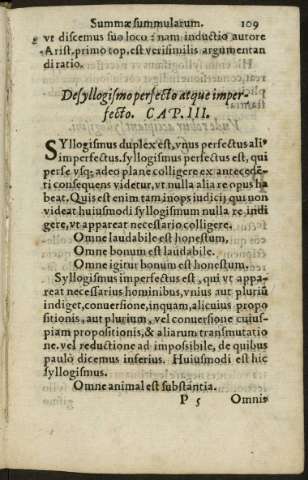 Summæ summularum. 109
vt discemus suo loco: nam inductio autore
Arist. primo top. est verisimilis argumentan
di ratio.
De syllogismo perfecto atque imper-
fecto. CAP. III.
SYllogismus duplex est, vnus perfectus ali⁹
imperfectus. syllogismus perfectus est, qui
per se vsq; adeo plane colligere ex antecedē-
ti consequens videtur, vt nulla alia re opus ha
beat. Quis est enim tam inops iudicij qui non
videat huiusmodi syllogismum nulla re indi
gere, vt appareat necessario colligere.
Omne laudabile est honestum,
Omne bonum est laudabile.
Omne igitur bonum est honestum.
Syllogismus imperfectus est, qui vt appa-
reat necessarius hominibus, vnius aut pluriū
indiget, conuersione, inquam, alicuius propo
sitionis, aut plurium, vel conuersione cuius-
piam propositionis, & aliarum transmutatio
ne. vel reductione ad impossibile, de quibus
paulò dicemus inferius. Huiusmodi est hic
syllogismus.
Omne animal est substantia.
P 5 Omnis